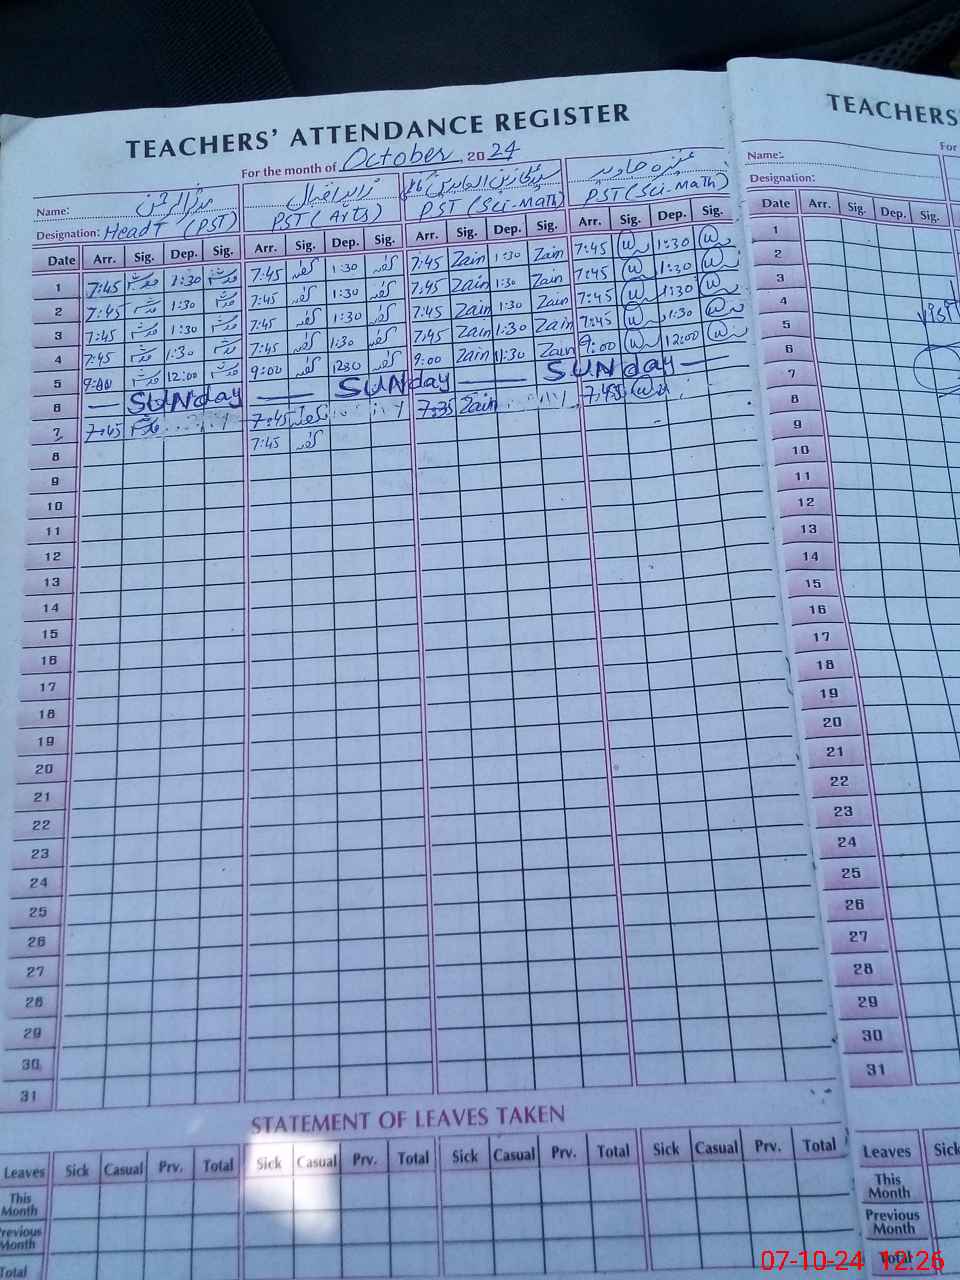 TEACHERS' ATTENDANCE REGISTER
For the month of October 2024
Name: مدثر الرحمن زاہد اقبال
Designation: Head T (PST) PST (Arts) PST (Sci-Math) PST (Sci-Math)
Date Arr. Sig. Dep. Sig. Arr. Sig. Dep. Sig. Arr. Sig. Dep. Sig. Arr. Sig. Dep. Sig.
1 7:45 1:30 7:45 1:30 7:45 Zain 1:30 Zain 7:45 1:30
2 7:45 1:30 7:45 1:30 7:45 Zain 1:30 Zain 7:45 1:30
3 7:45 1:30 7:45 1:30 7:45 Zain 1:30 Zain 7:45 1:30
4 7:45 1:30 7:45 1:30 7:45 Zain 1:30 Zain 7:45 1:30
5 9:00 12:00 9:00 1230 9:00 Zain Zain 9:00 12:00
6 — SUNday — SUNday — SUNday —
7 7:45 7:45 7:35 Zain 7:45
8 7:45
9
10
11
12
13
14
15
16
17
18
19
20
21
22
23
24
25
26
27
28
29
30
31
STATEMENT OF LEAVES TAKEN
Leaves Sick Casual Prv. Total Sick Casual Prv. Total Sick Casual Prv. Total Sick Casual Prv. Total
This Month
Previous Month
Total
TEACHERS'
For
Name:
Designation:
Date Arr. Sig. Dep. Sig.
1
2
3
4
5
6
7
8
9
10
11
12
13
14
15
16
17
18
19
20
21
22
23
24
25
26
27
28
29
30
31
Leaves Sick
This Month
Previous Month
Total
07-10-24 12:26